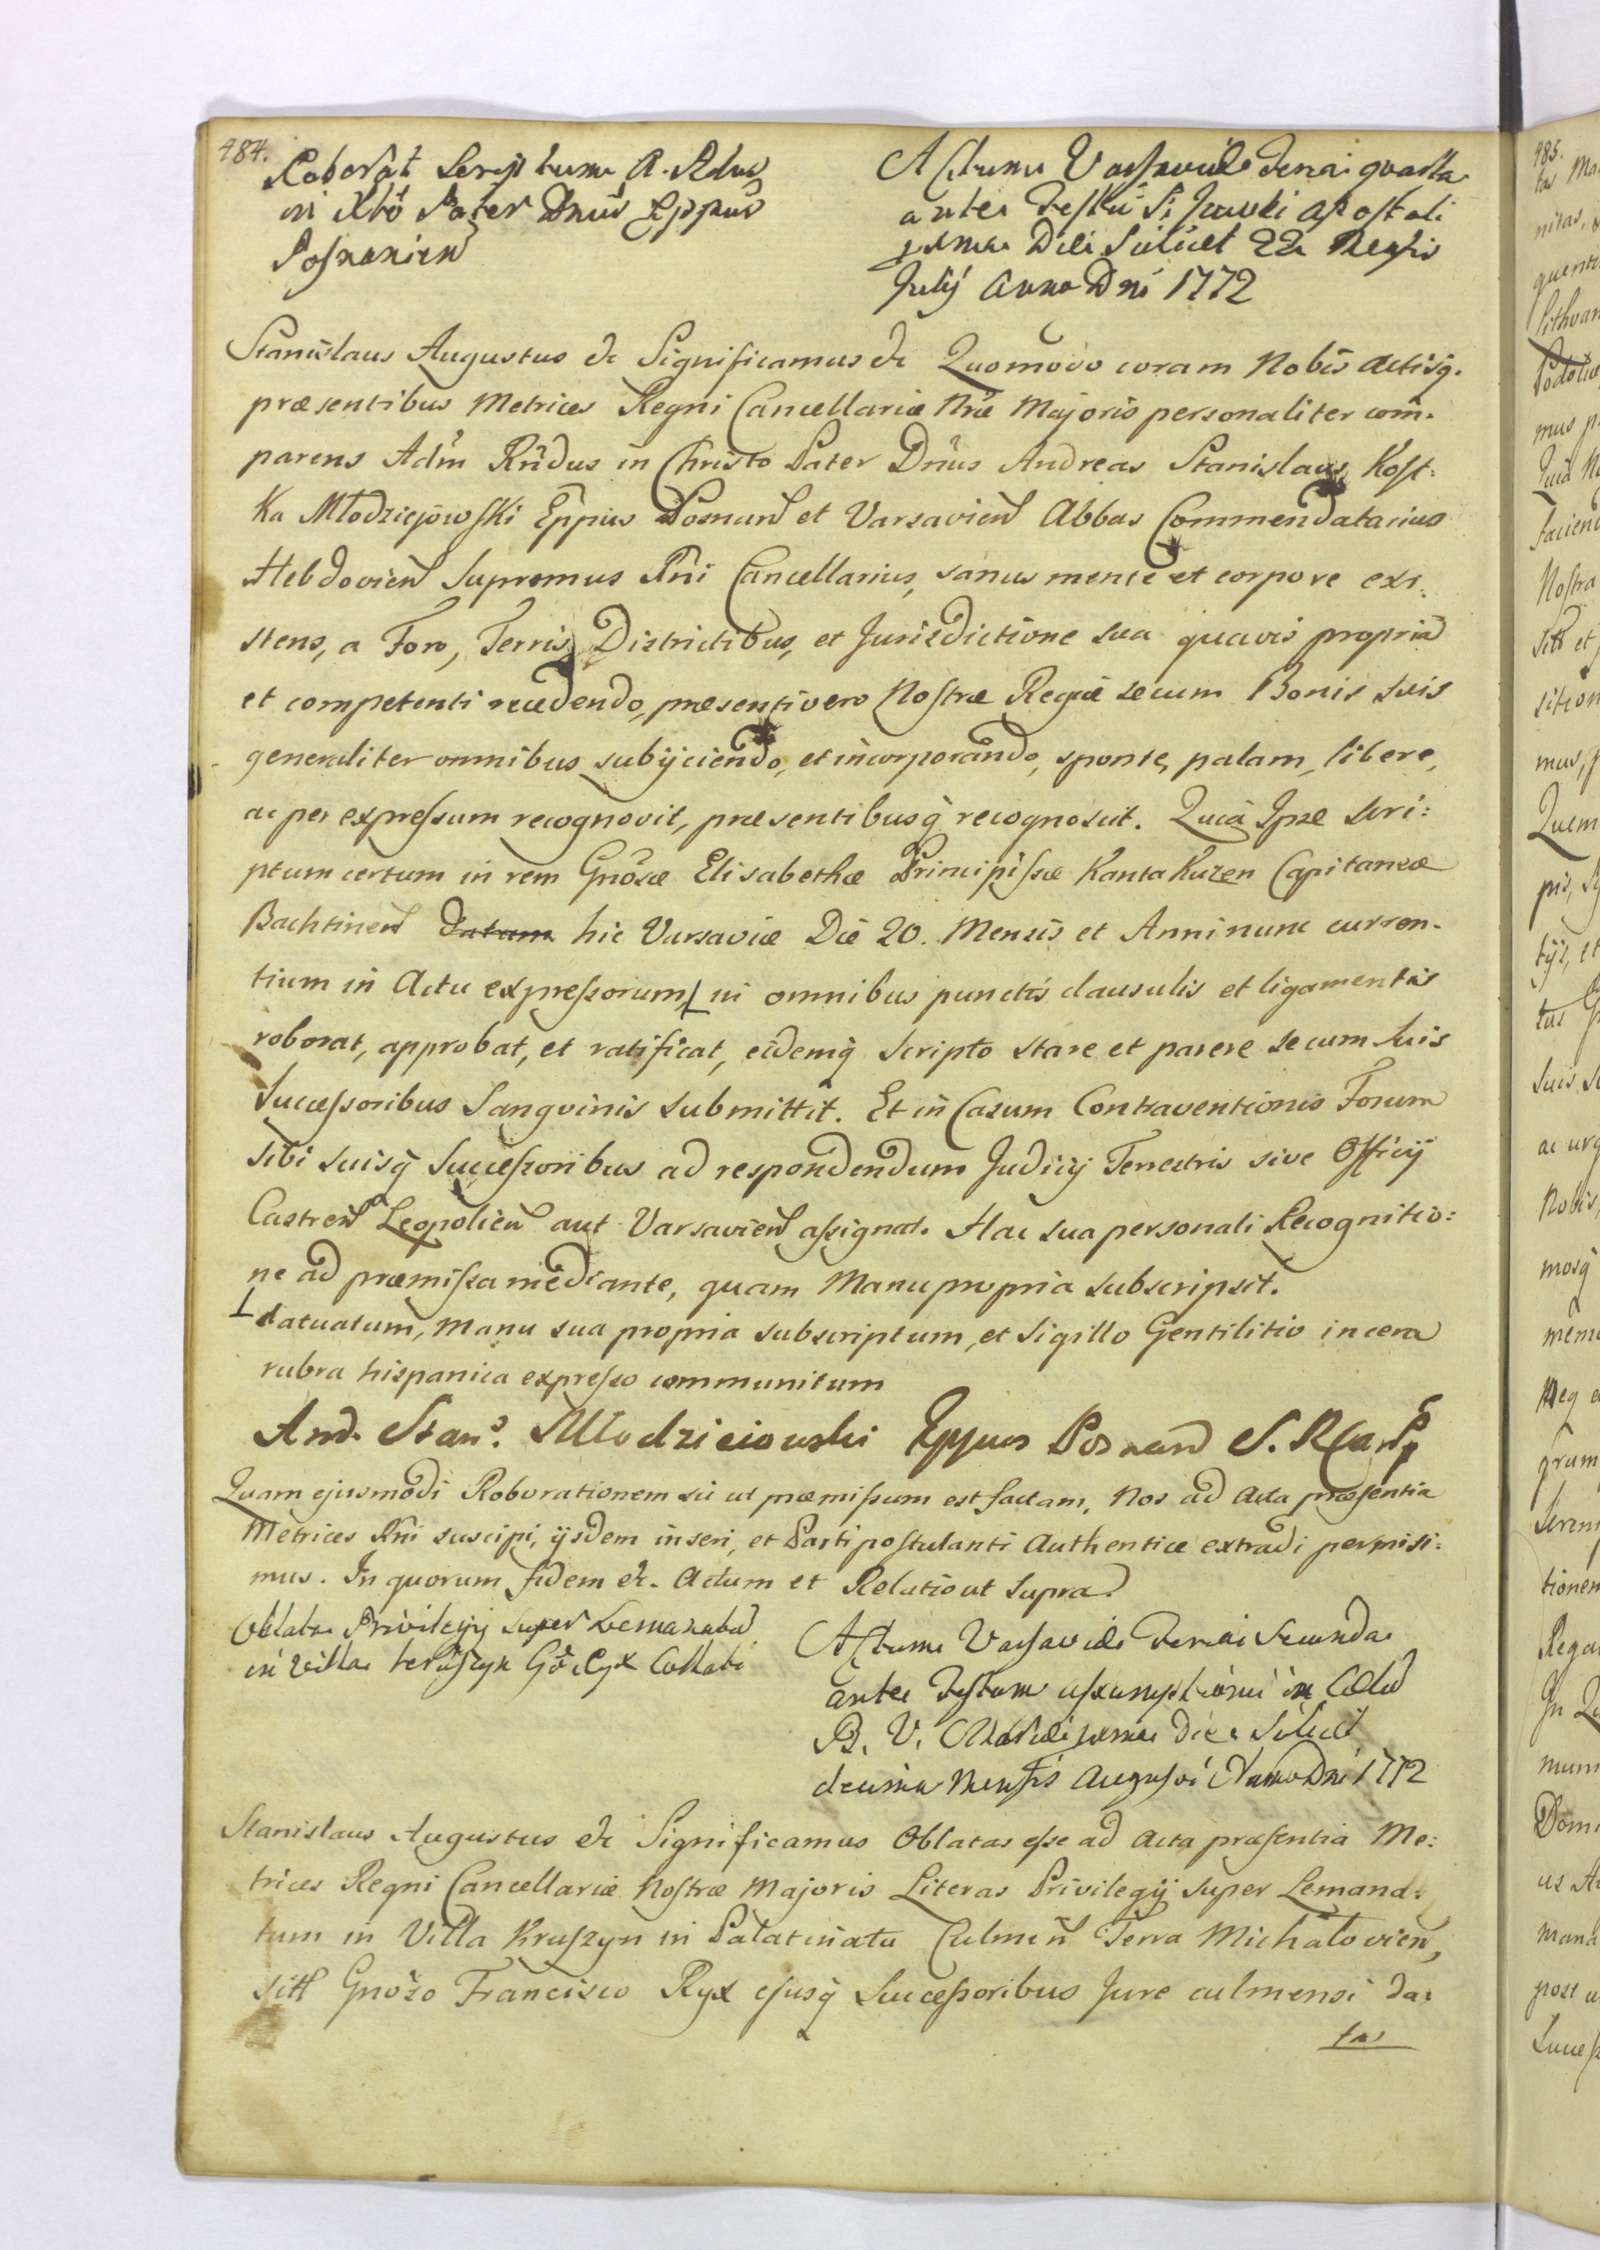 484.
Roborat Scriptum A. Rdus
in Xto Pater Dnus Eppus
Posnanien
Actum Varsaviæ Feria quarta
ante Festum S. Jacobi Apostoli
Die Scilicet 22 Mensis
Julij Anno Dni 1772
Stanislaus Augustus &c Significamus &c Quomodo coram Nobis Actisq.
præsentibus Metrices Regni Cancellariæ Nræ Majoris personaliter com-
parens Adm Rndus in Christo Pater Dnus Andreas Stanislaus Kost:
ka Młodziejowski Eppus Posnan et Varsavien Abbas Commendatarius
Hebdovien Supremus Rni Cancellarius, sanus mente et corpore exi-
stens, a Foro, Terris, Districtibus, et Jurisdictione sua quavis propria
et competenti recedendo, præsenti vero Nostræ Regiæ secum Bonis suis
generaliter omnibus subijciendo, et incorporando, sponte, palam, libere,
ac per expressum recognovit, præsentibusq recognoscit. Quia Ipse Scri:
ptum certum in rem Gnosæ Elisabethæ Principissæ Kantakuzen Capitaneæ
Bachtinen datum hic Varsaviæ Die 20. Mensis et Anni nunc curren-
tium in Actu expressorum, in omnibus punctis clausulis et ligamentis
roborat, approbat, et ratificat, eidemq Scripto stare et parere secum suis
Successoribus Sangvinis submittit. Et in Casum Contraventionis Forum
sibi suisq Successoribus ad respondendum Judicij Terrestris sive Officij
Castren Leopolien aut Varsavien assignat. Hac sua personali Recognitio:
ne ad præmissa mediante, quam Manu propria subscripsit.
datuatum, Manu sua propria subscriptum, et Sigillo Gentilitio in cera
rubra hispanica expresso communitum
And. Stan. Młodzieiowski Eppus Posnan S. R.
Quam ejusmodi Roborationem sic ut præmissum est factam, Nos ad Acta præsentia
Metrices Rni suscipi, ijsdem inseri, et Parti postulanti Authentice extradi permisi:
mus. In quorum fidem &c. Actum et Relatio ut Supra
Oblata Privilegij super Lemanatum
in Villa Kruszyn Go Ryx Collati
Actum Varsaviæ Feria Secunda
ante Festum Assumptionis in Cælum
B. V. Mariæ Die Scilicet
decima Mensis Augusti Anno Dni 1772
Stanislaus Augustus &c Significamus Oblatas esse ad Acta præsentia Me:
trices Regni Cancellariæ Nostræ Majoris Literas Privilegij super Lemana-
tum in Villa Kruszyn in Palatinatu Culmen Terra Michałovien,
sitt Gnoso Francisco Ryx ejusq Successoribus Jure culmensi da:
ta